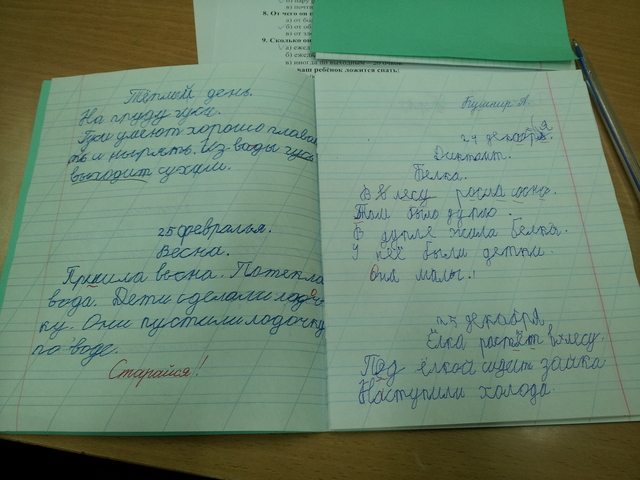 8. От чего он
9. Сколько он
а) ежед
б) ежед
в) иногда по выходным
ваш ребёнок ложится спать:
Тёплый день.
На пруду гуси.
Гуси умеют хорошо плава
ть и нырять. Из воды гусь
выходит сухим.
25 февралья.
Весна.
Пришла весна. Потекла
вода. Дети сделали лодоч
ку. Они пустили лодочку
по воде.
Старайся!
Бушнир А.
24 декабря
Диктант.
Белка.
В лесу росла сосна.
Там было дупло.
В дупле жила белка.
У неё были детки.
Они малы.
25 декабря
Ёлка растёт в лесу.
Под ёлкой сидит зайка
Наступили холода